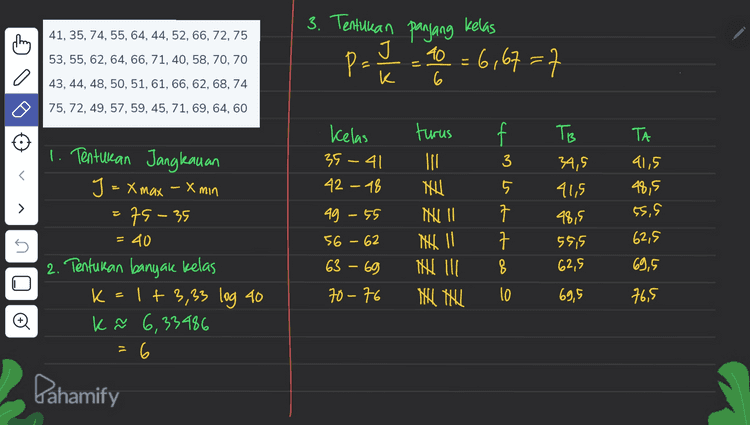 41, 35, 74, 55, 64, 44, 52, 66, 72, 75
53, 55, 62, 64, 66, 71, 40, 58, 70, 70
43, 44, 48, 50, 51, 61, 66, 62, 68, 74
75, 72, 49, 57, 59, 45, 71, 69, 64, 60
1. Tentukan Jangkauan
J = X max - X min
= 75 - 35
= 40
2. Tentukan banyak kelas
K = 1 + 3,33 log 40
K ≈ 6,33486
= 6
3. Tentukan panjang kelas
P = J/K = 40/6 = 6,67 = 7
Kelas turus f TB TA
35 - 41 ||| 3 34,5 41,5
42 - 48 𝍸 5 41,5 48,5
49 - 55 𝍸 || 7 48,5 55,5
56 - 62 𝍸 || 7 55,5 62,5
63 - 69 𝍸 ||| 8 62,5 69,5
70 - 76 𝍸 𝍸 10 69,5 76,5
Pahamify